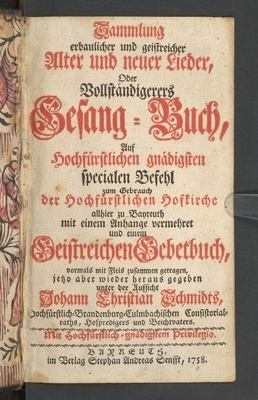 Sammlung
erbaulicher und geistreicher
Alter und neuer Lieder,
Oder
Vollständigerers
Gesang-Buch,
Auf
Hochfürstlichen gnädigsten
specialen Befehl
zum Gebrauch
der Hochfürstlichen Hofkirche
allhier zu Bayreuth
mit einem Anhange vermehret
und einem
Geistreichen Gebetbuch,
vormals mit Fleis zusammen getragen,
jetzo aber wieder heraus gegeben
unter der Aufsicht
Johann Christian Schmidts,
Hochfürstlich-Brandenburg-Culmbachischen Consistorial-
raths, Hofpredigers und Beichtvaters.
Mit Hochfürstlich-gnädigstem Privilegio.
BAYREUTH,
im Verlag Stephan Andreas Senfft, 1758.